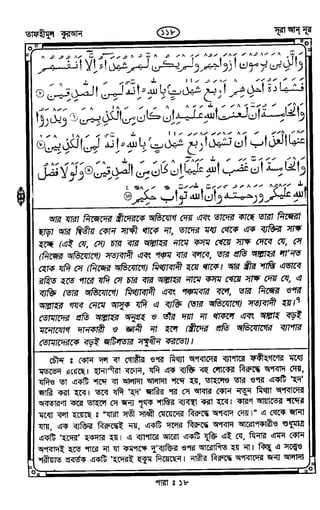 তাফহীমুল কুরআন
১১৮
সূরা আন্ নূর
وَالَّذِينَ يَرْمُونَ أَزْوَاجَهُمْ وَلَمْ يَكُنْ لَّهُمْ شُهَدَاءُ إِلَّا أَنْفُسُهُمْ
فَشَهَادَةُ أَحَدِهِمْ أَرْبَعُ شَهٰدٰتٍ بِاللهِ إِنَّهُ لَمِنَ الصّٰدِقِينَ ⑥
وَالْخَامِسَةُ أَنَّ لَعْنَتَ اللهِ عَلَيْهِ إِنْ كَانَ مِنَ الْكٰذِبِينَ ⑦ وَيَدْرَؤُا
عَنْهَا الْعَذَابَ أَنْ تَشْهَدَ أَرْبَعَ شَهٰدٰتٍ بِاللهِ إِنَّهُ لَمِنَ الْكٰذِبِينَ ⑧
وَالْخَامِسَةَ أَنَّ غَضَبَ اللهِ عَلَيْهَا إِنْ كَانَ مِنَ الصّٰدِقِينَ ⑨ وَلَوْلَا فَضْلُ
اللهِ عَلَيْكُمْ وَرَحْمَتُهُ وَأَنَّ اللهَ تَوَّابٌ حَكِيمٌ ⑩
আর যারা নিজেদের স্ত্রীদেরকে অভিযোগ দেয় এবং তাদের কাছে তারা নিজেরা
ছাড়া আর দ্বিতীয় কোন সাক্ষী থাকে না, তাদের মধ্য থেকে এক ব্যক্তির সাক্ষ্য
হচ্ছে (এই যে, সে) চার বার আল্লাহর নামে কসম খেয়ে সাক্ষ্য দেবে যে, সে
(নিজের অভিযোগে) সত্যবাদী এবং পঞ্চম বার বলবে, তার প্রতি আল্লাহর লা'নত
হোক যদি সে (নিজের অভিযোগে) মিথ্যাবাদী হয়ে থাকে। আর স্ত্রীর শাস্তি এভাবে
রহিত হতে পারে যদি সে চার বার আল্লাহর নামে কসম খেয়ে সাক্ষ্য দেয় যে, এ
ব্যক্তি (তার অভিযোগে) মিথ্যাবাদী এবং পঞ্চমবার বলে, তার নিজের ওপর
আল্লাহর গযব নেমে আসুক যদি এ ব্যক্তি (তার অভিযোগে) সত্যবাদী হয়।৭
তোমাদের প্রতি আল্লাহর অনুগ্রহ ও তাঁর দয়া না থাকলে এবং আল্লাহ বড়ই
মনোযোগ দানকারী ও জ্ঞানী না হলে (স্ত্রীদের প্রতি অভিযোগের ব্যাপার
তোমাদেরকে বড়ই জটিলতার সম্মুখীন করতো)।
চৌদ্দ ঃ কোন দল বা গোষ্ঠীর ওপর মিথ্যা অপবাদের ব্যাপারে ফকীহগণের মধ্যে
মতভেদ রয়েছে। হানাফীরা বলেন, যদি এক ব্যক্তি বহু লোকের বিরুদ্ধে অপবাদ দেয়,
যদিও তা একটি শব্দে বা আলাদা আলাদা শব্দে হয়, তাহলেও তার ওপর একটি 'হদ'
জারি করা হবে। তবে যদি 'হদ' জারির পর সে আবার কোন নতুন মিথ্যা অপবাদের
অবতারণা করে তাহলে সে জন্য পৃথক শাস্তির ব্যবস্থা করা হবে। কারণ আয়াতের শব্দের
মধ্যে বলা হয়েছে ঃ "যারা সতী সাধ্বী মেয়েদের বিরুদ্ধে অপবাদ দেয়।" এ থেকে জানা
যায়, এক ব্যক্তির বিরুদ্ধেই নয়, একটি দলের বিরুদ্ধে অপবাদ আরোপকারীও শুধুমাত্র
একটি 'হদের' হকদার হয়। এ ব্যাপারে আরো একটি যুক্তি এই যে, যিনার এমন কোন
অপবাদই হতে পারে না যা কমপক্ষে দু'ব্যক্তির ওপর আরোপিত হয় না। কিন্তু এ সত্ত্বেও
শরীয়াত প্রবর্তক একটি 'হদেরই হুকুম দিয়েছেন। নারীর বিরুদ্ধে অপবাদের জন্য আলাদা
পারা ঃ ১৮